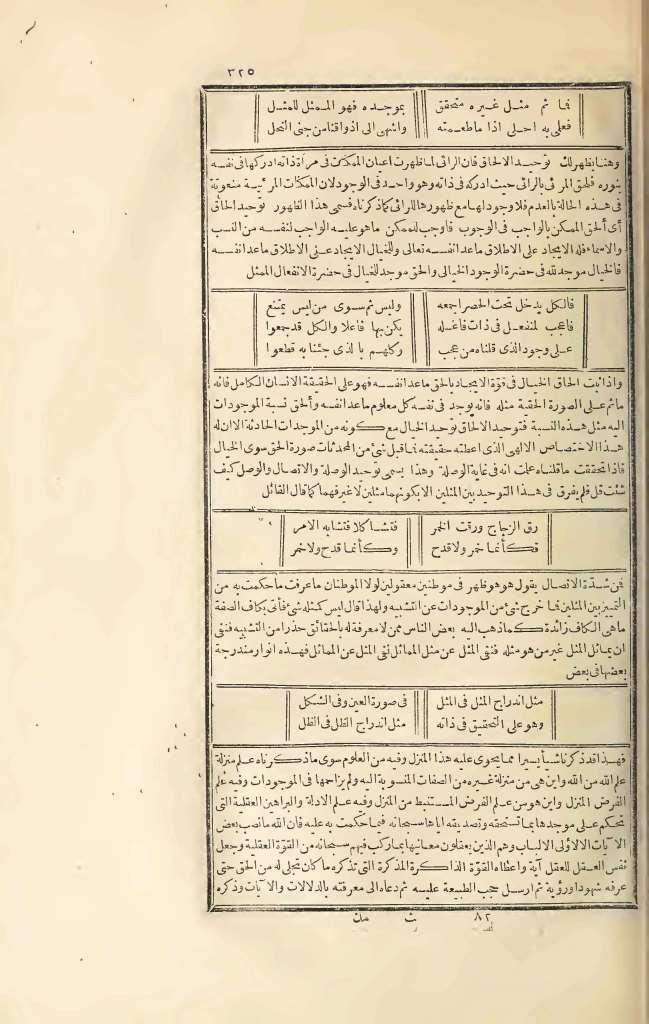 ٣٢٥
فما ثم مثل غيره متحقق بموجده فهو الممثل للمثل
فعلى به احلى اذا ما طعمته واشهى الى اذواقنا من جنى النحل
وهنا يظهر لك توحيد الالحاق فان الرائى لما ظهرت اعيان الممكنات فى مرآة ذاته ادركها فى نفسه
بنوره فلحق المرئى بالرائى حيث ادركه فى ذاته وهو واحد فى الوجود لان الممكنات المرئية منعوتة
فى هذه الحالة بالعدم فلا وجود لها مع ظهورها للرائى كما ذكرناه فسمى هذا الظهور توحيد الحاق
أى ألحق الممكن بالواجب فى الوجوب فاوجب للممكن ما هو عليه الواجب لنفسه من النسب
والاسماء فله الايجاد على الاطلاق ما عدا نفسه تعالى وللخيال الايجاد على الاطلاق ما عدا نفسه
فالخيال موجد لله فى حضرة الوجود الخيالى والحق موجد للخيال فى حضرة الانفعال الممثل
فالكل يدخل تحت الحصر اجمعه وليس ثم سوى من ليس يمتنع
فاعجب لمنفعل فى ذات فاعله يكن بها فاعلا والكل قد جمعوا
على وجود الذى قلناه من عجب وكلهم بالذى جئنا به قطعوا
واذا ثبت الحاق الخيال فى قوة الايجاد بالحق ما عدا نفسه فهو على الحقيقة الانسان الكامل فانه
ما ثم على الصورة الحقية مثله فانه يوجد فى نفسه كل معلوم ما عدا نفسه وألحق نسبة الموجودات
اليه مثل هذه النسبة فتوحيد الالحاق توحيد الخيال مع كونه من الموجدات الحادثة الا ان له
هذا الاختصاص الالهى الذى اعطته حقيقته فما قبل شئ من المحدثات صورة الحق سوى الخيال
فاذا تحققت ما قلناه علمت انه فى غاية الوصلة وهذا يسمى توحيد الوصلة والاتصال والوصل كيف
شئت قل فلم يفرق فى هذا التوحيد بين المثلين الا بكونهما مثلين لا غير فهما كما قال القائل
رق الزجاج ورقت الخمر فتشاكلا فتشابه الامر
فكأنما خمر ولا قدح وكأنما قدح ولا خمر
فمن شدة الاتصال يقول هو هو ظهر فى موطنين معقولين لولا الموطنان ما عرفت ما حكمت به من
التمييز بين المثلين فما خرج شئ من الموجودات عن التشبيه ولهذا قال ليس كمثله شئ فأتى بكاف الصفة
ما هى الكاف زائدة كما ذهب اليه بعض الناس ممن لا معرفة له بالحقائق حذرا من التشبيه فنفى
ان يماثل المثل غير من هو مثله فنفى المثل عن مثل المماثل نفى المثل عن المماثل فهذه انوار مندرجة
بعضها فى بعض
مثل اندراج المثل فى المثل فى صورة العين وفى الشكل
وهو على التحقيق فى ذاته مثل اندراج الظل فى الظل
فهذا قد ذكرنا شيأ يسيرا مما يحوى عليه هذا المنزل وفيه من العلوم سوى ما ذكرناه علم منزلة
علم الله من الله واين هى من منزلة غيره من الصفات المنسوبة اليه ولم يزاحمها فى الموجودات وفيه علم
الفرض المنزل واين هو من علم الفرض المستنبط من المنزل وفيه علم الادلة والبراهين العقلية التى
تحكم على موجدها بما تستحقه وتصديقه اياها سبحانه فيما حكمت به عليه فان الله ما نصب بعض
الآيات الا لاولى الالباب وهم الذين يعقلون معانيها بما ركب فيهم سبحانه من القوة العقلية وجعل
نفس العقل للعقل آية واعطاه القوة الذاكرة المذكرة التى تذكره ما كان تجلى له من الحق حتى
عرفه شهودا ورؤية ثم ارسل حجب الطبيعة عليه ثم دعاه الى معرفته بالدلالات والآيات وذكره
٨٢ ث مك